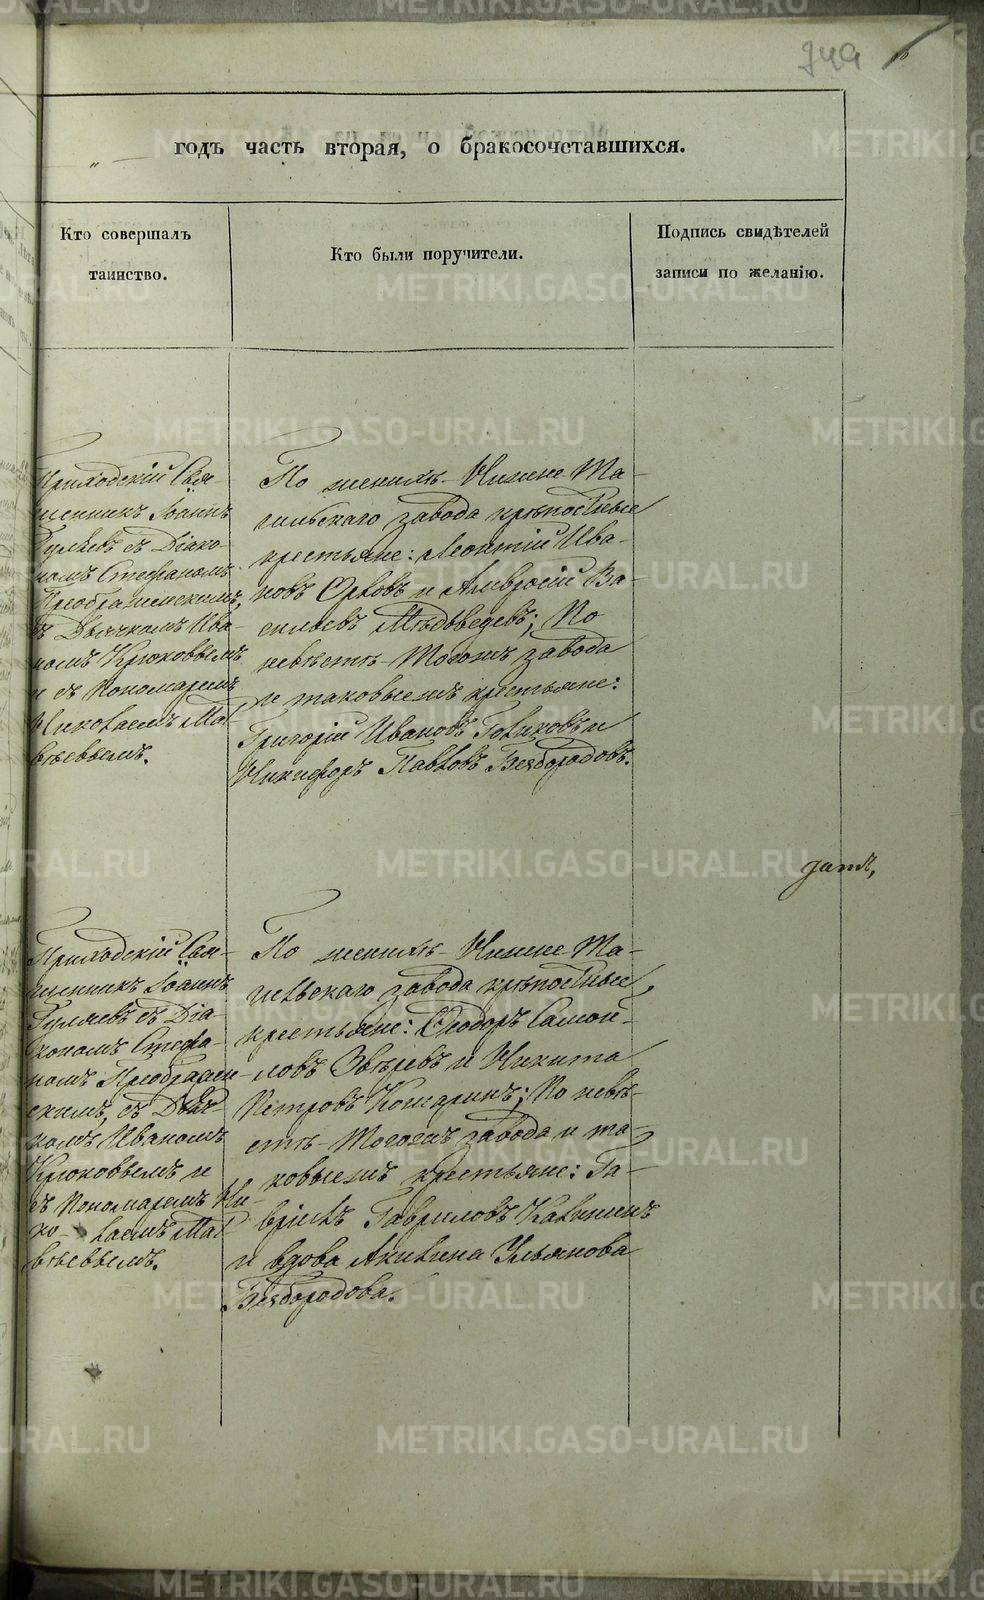 749
годъ часть вторая, о бракосочетавшихся.
Кто совершалъ
таинство.
Кто были поручители.
Подпись свидѣтелей
записи по желанію.
Приходскій Свя-
щенникъ Іоаннъ
Гуляевъ съ Діако-
номъ Стефаномъ
Преображенскимъ,
съ Дьячкомъ Ива-
номъ Крюковымъ
и съ Пономаремъ
Николаемъ Мат-
вѣевымъ.
По женихѣ Нижне-Та-
гильскаго завода крѣпостные
крестьяне: Леонтій Ива-
новъ Орловъ и Амвросій Ва-
сильевъ Медвѣдевъ; По
невѣстѣ Тогожъ завода
и таковыежъ крестьяне:
Григорій Ивановъ Голиковъ и
Никифоръ Павловъ Безбородовъ.
затѣ,
Приходскій Свя-
щенникъ Іоаннъ
Гуляевъ съ Діа-
кономъ Стефа-
номъ Преображен-
скимъ, съ Дьяч-
комъ Иваномъ
Крюковымъ и
съ Пономаремъ Ни-
ко- лаемъ Мат-
вѣевымъ.
По женихѣ Нижне-Та-
гильскаго завода крѣпостные
крестьяне: Ѳеодоръ Самой-
ловъ Звѣревъ и Никита
Петровъ Кошаринъ; По невѣ-
стѣ Тогожъ завода и та-
ковыежъ крестьяне: Га-
вріилъ Гавриловъ Калининъ
и вдова Акилина Ульянова
Безбородова.
METRIKI.GASO-URAL.RU